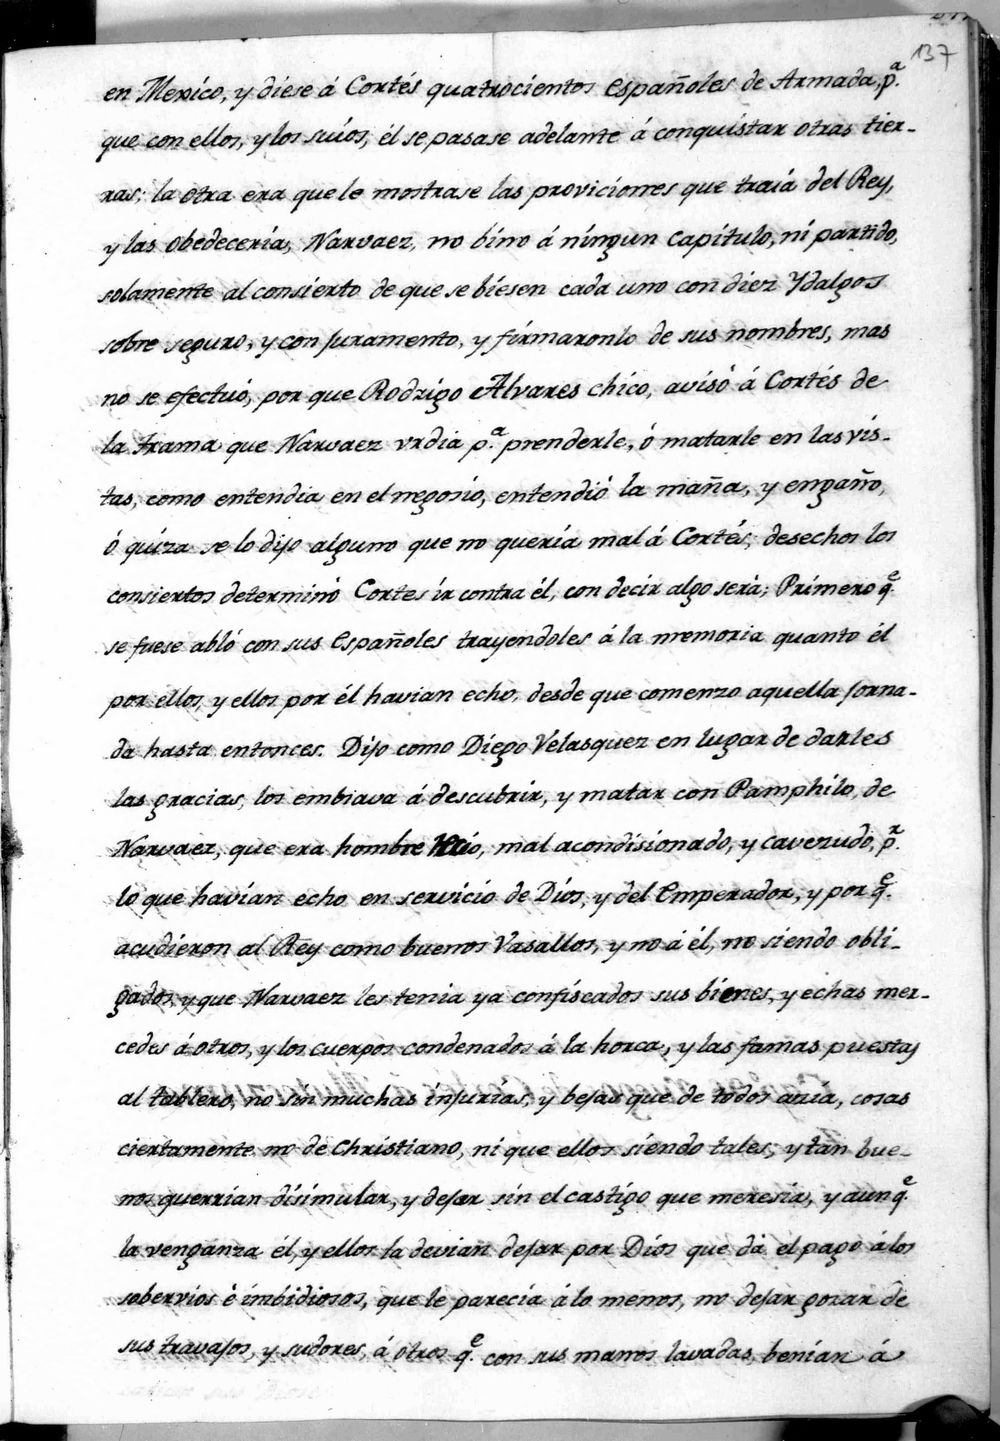 137
en Mexico, y diese á Cortés quatrocientos españoles de Armada, p.ª
que con ellos, y los suios, él se pasase adelante á conquistar otras tier-
ras; la otra era que le mostrase las proviciones que traiá del Rey,
y las obedeceriá, Narvaez, no bino á ningun capitulo, ni partido,
solamente al consierto de que se biesen cada uno con diez Ydalgos
sobre seguro, y con juramento, y firmaronlo de sus nombres, mas
no se efectuó, por que Rodrigo Alvares chico, avisó á Cortés de
la trama que Narvaez vrdia p.ª prenderle, ó matarle en las vis-
tas, como entendia en el negosio, entendió la maña, y engaño,
ó quiza se lo dijo alguno que no queriá mal á Cortés; desechos los
consiertos determinó Cortes ir contra él, con decir algo será; Primero q.e
se fuese abló con sus españoles trayendoles á la memoria quanto él
por ellos, y ellos por él havian echo, desde que comenzo aquella jorna-
da hasta entonces. Dijo como Diego Velasquez en lugar de darles
las gracias, los embiava á descubrir, y matar con Pamphilo, de
Narvaez, que era hombre recio, mal acondisionado, y cavezudo, p.r
lo que havian echo en servicio de Dios, y del Emperador, y por q.e
acudieron al Rey como buenos Vasallos, y no á él, no siendo obli-
gados, y que Narvaez les tenia ya confiscados sus bienes, y echas mer-
cedes á otros, y los cuerpos condenados á la horca, y las famas puestas
al tablero, no sin muchas injurias, y befas que de todos aziá, cosas
ciertamente no de Christiano, ni que ellos siendo tales, y tan bue-
nos querrian disimular, y dejar sin el castigo que meresia, y aunq.e
la venganza él, y ellos la devian dejar por Dios que dá el pago á los
sobervios é imbidiosos, que le parecia á lo menos, no dejar gozar de
sus travajos, y sudores, á otros q.e con sus manos lavadas, benian á